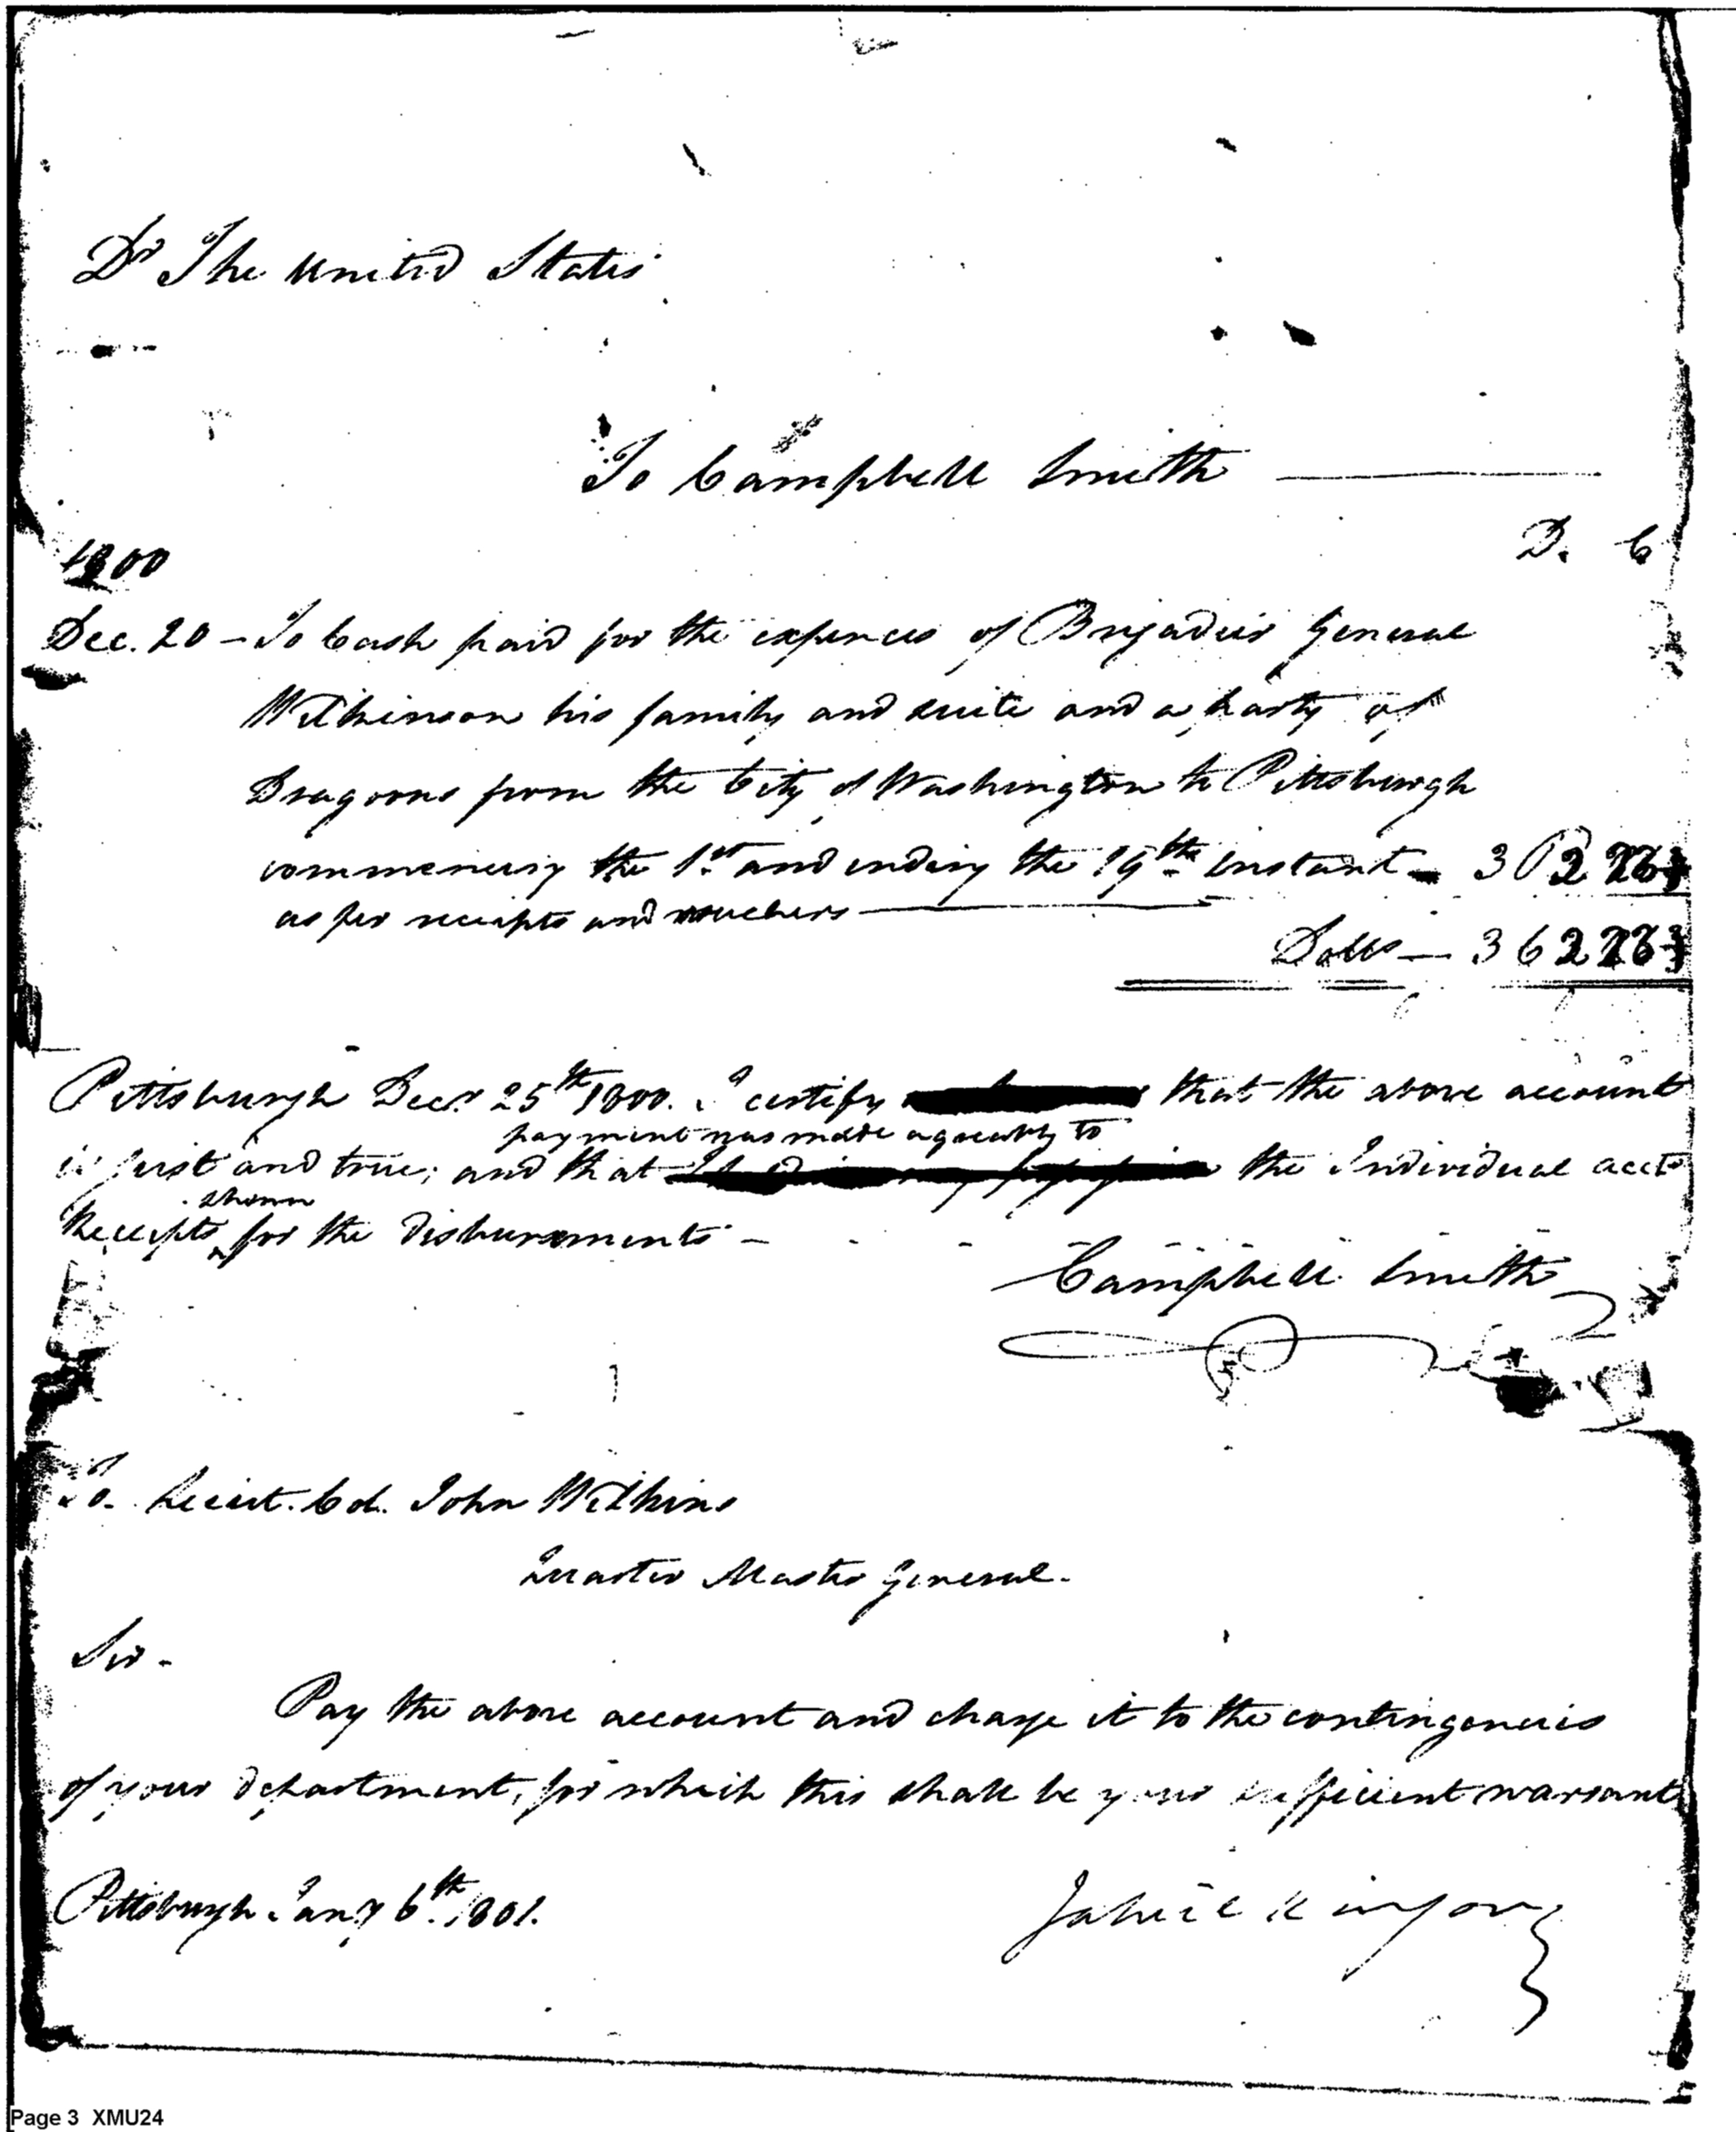 Dr The United States
To Campbell Smith
1800
D. C
Dec. 20 - To Cash paid for the expences of Brigadier General
Wilkinson his family and suite and a party of
Dragoons from the City of Washington to Pittsburgh
commencing the 1st and ending the 19th instant
as per receipts and vouchers
Dolls - 362
Pittsburgh Decr 25th 1800. I certify that the above account
payment was made agreeably to
is just and true; and that the Individual accts
shown
Receipts for the disbursements -
Campbell Smith
To. Lieut. Col. John Wilkins
Quarter Master General.
Sir -
Pay the above account and charge it to the contingencies
of your department, for which this shall be your sufficient warrant
Pittsburgh Jany 6th 1801.
Page 3 XMU24